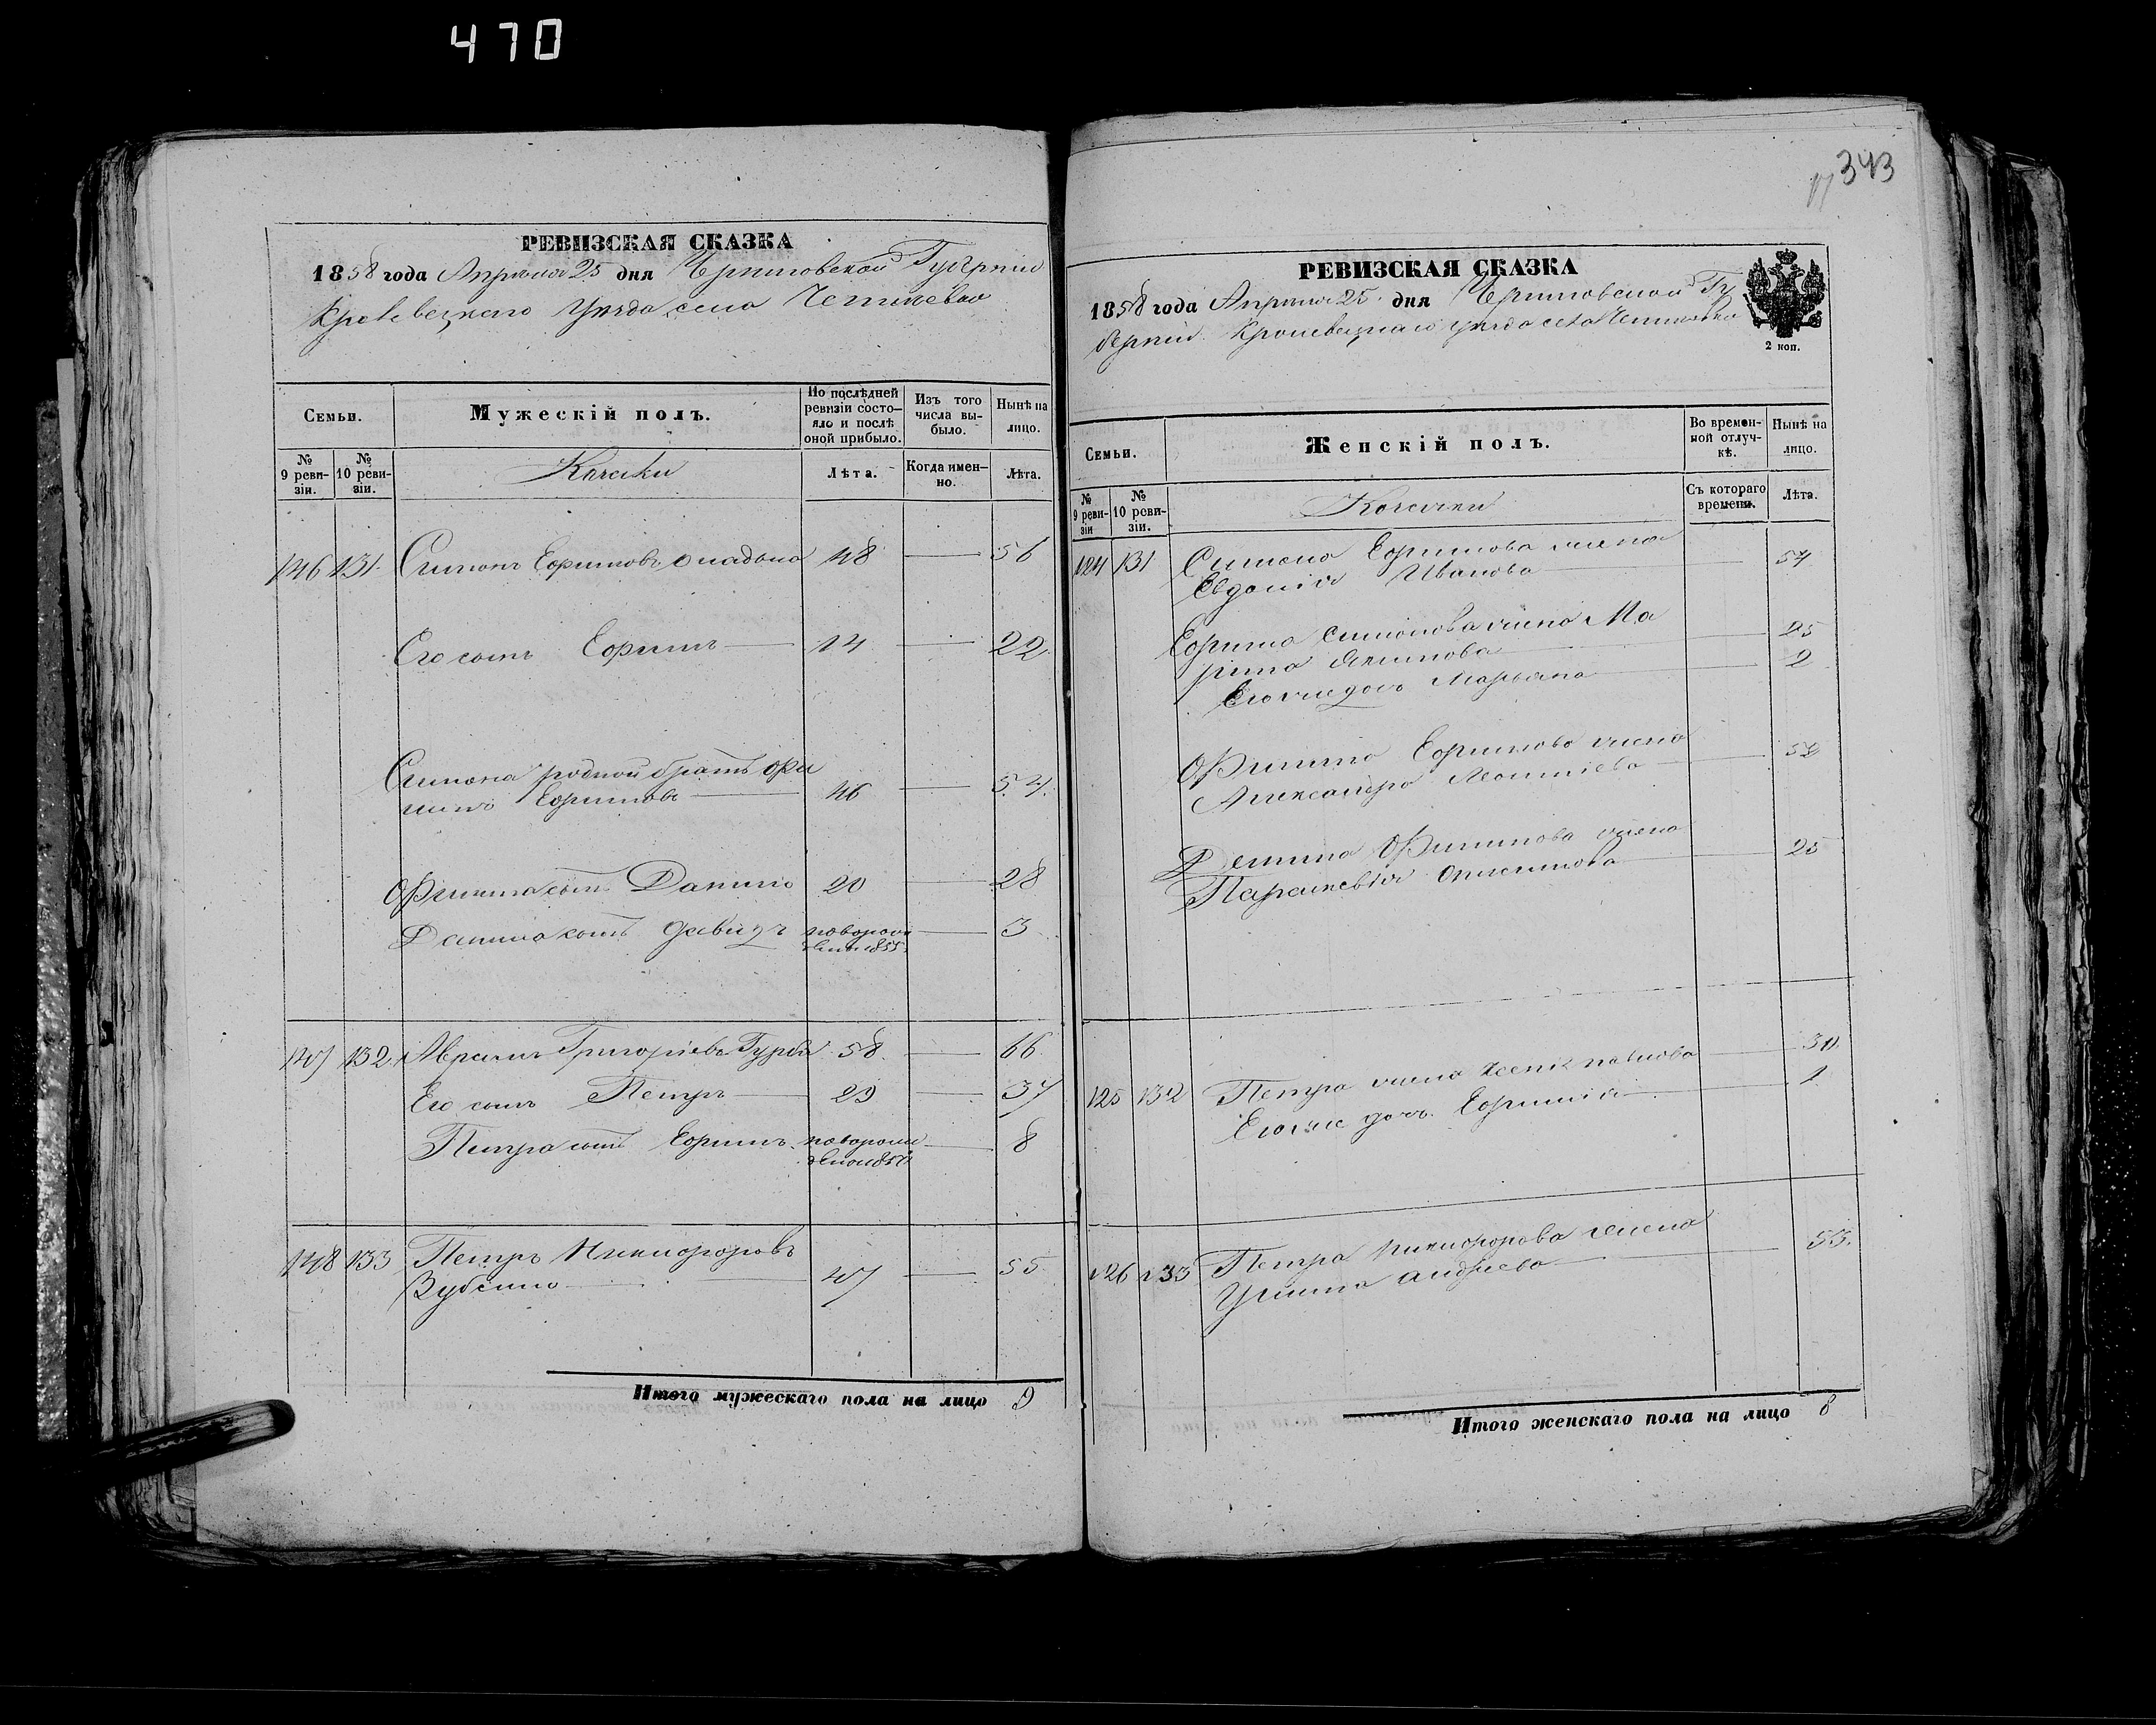 470
РЕВИЗСКАЯ СКАЗКА
1858 года Апреля 25 дня Черниговской Губерніи
Кролевецкаго Уезда села
Семьи.
Мужескій полъ.
По послѣдней ревизіи состояло и послѣ оной прибыло.
Изъ того числа выбыло.
Нынѣ на лицо.
№ 9 ревизіи.
№ 10 ревизіи.
Козаки
Лѣта.
Когда именно.
Лѣта.
146 131 Симонъ Ефимовъ 48 — 56
Его сынъ Ефимъ — 14 — 22
Симона родной братъ Фи
липъ Ефимовъ — 46 — 54.
Филипа сынъ Данило 20 — 28
Данила сынъ Давидъ новорож
1855 — 3
147 132 Аврамъ Григоріевъ 58 — 66
Его сынъ Петръ — 29 — 37
Петра сынъ Ефимъ новорож — 8
1850
148 133 Петръ Никифоровъ
47 — 55
Итого мужескаго пола на лицо 9
343
РЕВИЗСКАЯ СКАЗКА
1858 года Апреля 25 дня Черниговской Гу
берніи Кролевецкаго уезда села
2 коп.
Семьи.
Женскій полъ.
Во временной отлучкѣ.
Нынѣ на лицо.
№ 9 ревизіи
№ 10 ревизіи.
Козачки
Съ котораго времени.
Лѣта.
124 131 Симона Ефимова жена
Евдокія Иванова — 54
Ефима Симонова жена Ма
рина Якимова — 25
Его же дочь Марьяна — 2
Филипа Ефимова жена
Александра —
Данила Филипова жена
Параскевія Онисимова — 25
125 132 Петра жена Ксенія Павлова — 30
Его же дочь Ефимія — 1
126 133 Петра Никифорова жена
Улита Андреева — 55.
Итого женскаго пола на лицо 8